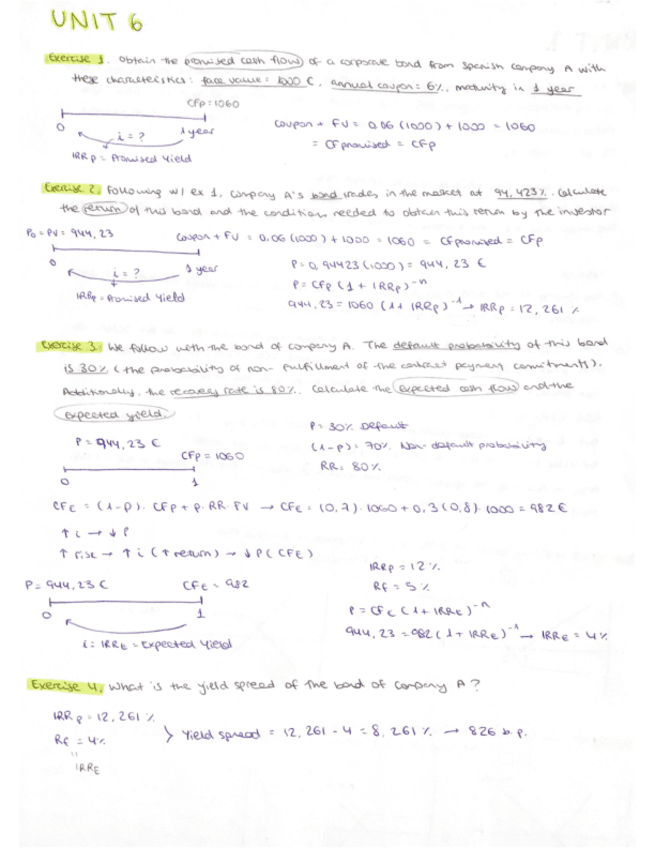 UNIT 6
Exercise 1. Obtain the promised cash flow of a corporate bond from Spanish company A with
these characteristics: face value = 1000 €, annual coupon = 6%, maturity in 1 year
CFp = 1060
0 1 year
i = ?
IRRp = Promised Yield
Coupon + FV = 0.06 (1000) + 1000 = 1060
= CF promised = CFp
Exercise 2. Following w/ ex 1, company A's bond trades in the market at 94,423%. Calculate
the return of this bond and the conditions needed to obtain this return by the investor
P₀ = PV = 944,23
0 1 year
i = ?
IRRp = Promised Yield
Coupon + FV = 0.06 (1000) + 1000 = 1060 = CF promised = CFp
P = 0,94423 (1000) = 944,23 €
P = CFp (1 + IRRp)⁻ⁿ
944,23 = 1060 (1 + IRRp)⁻¹ → IRRp = 12,261 %
Exercise 3. We follow with the bond of company A. The default probability of this bond
is 30% (the probability of non-fulfillment of the contract payment commitments).
Additionally, the recovery rate is 80%. Calculate the expected cash flow and the
expected yield.
P = 944,23 €
CFp = 1060
0 1
P = 30% Default
(1-p) = 70% Non-default probability
RR = 80%
CFE = (1-p) · CFp + p · RR · FV → CFE = (0,7) · 1060 + 0,3 (0,8) · 1000 = 982 €
↑ i → ↓ P
↑ risc → ↑ i (↑ return) → ↓ P (CFE)
P = 944,23 € CFE = 982
0 1
i = IRRE = Expected Yield
IRRp = 12%
Rf = 5%
P = CFE (1 + IRRE)⁻ⁿ
944,23 = 982 (1 + IRRE)⁻¹ → IRRE = 4%
Exercise 4. What is the yield spread of the bond of company A?
IRRp = 12,261 %
Rf = 4%
"
IRRE
> Yield spread = 12,261 - 4 = 8,261 % → 826 b.p.